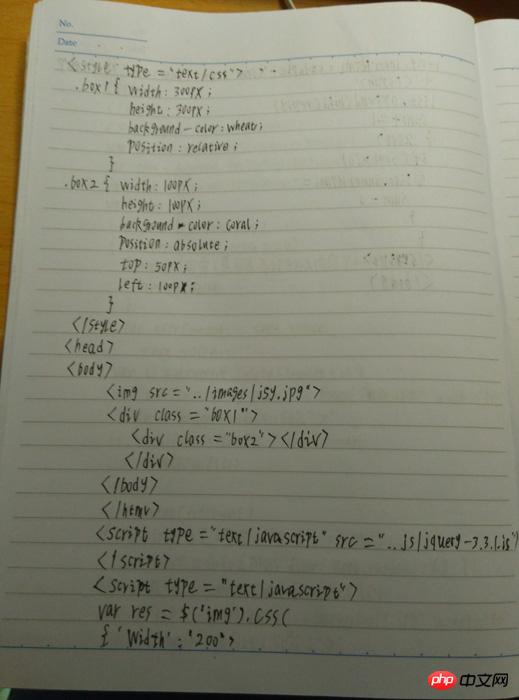 No.
Date
<style type="text/css">
.box1{ width:300px;
height:300px;
background-color:wheat;
position:relative;
}
.box2{ width:100px;
height:100px;
background-color:coral;
position:absolute;
top:50px;
left:100px;
}
</style>
<head>
<body>
<img src="../images/jsy.jpg">
<div class="box1">
<div class="box2"></div>
</div>
</body>
</html>
<script type="text/javascript" src="..js/jquery-3.3.1.js">
</script>
<script type="text/javascript">
var res = $('img').css(
{ 'width':'200',
php 中文网